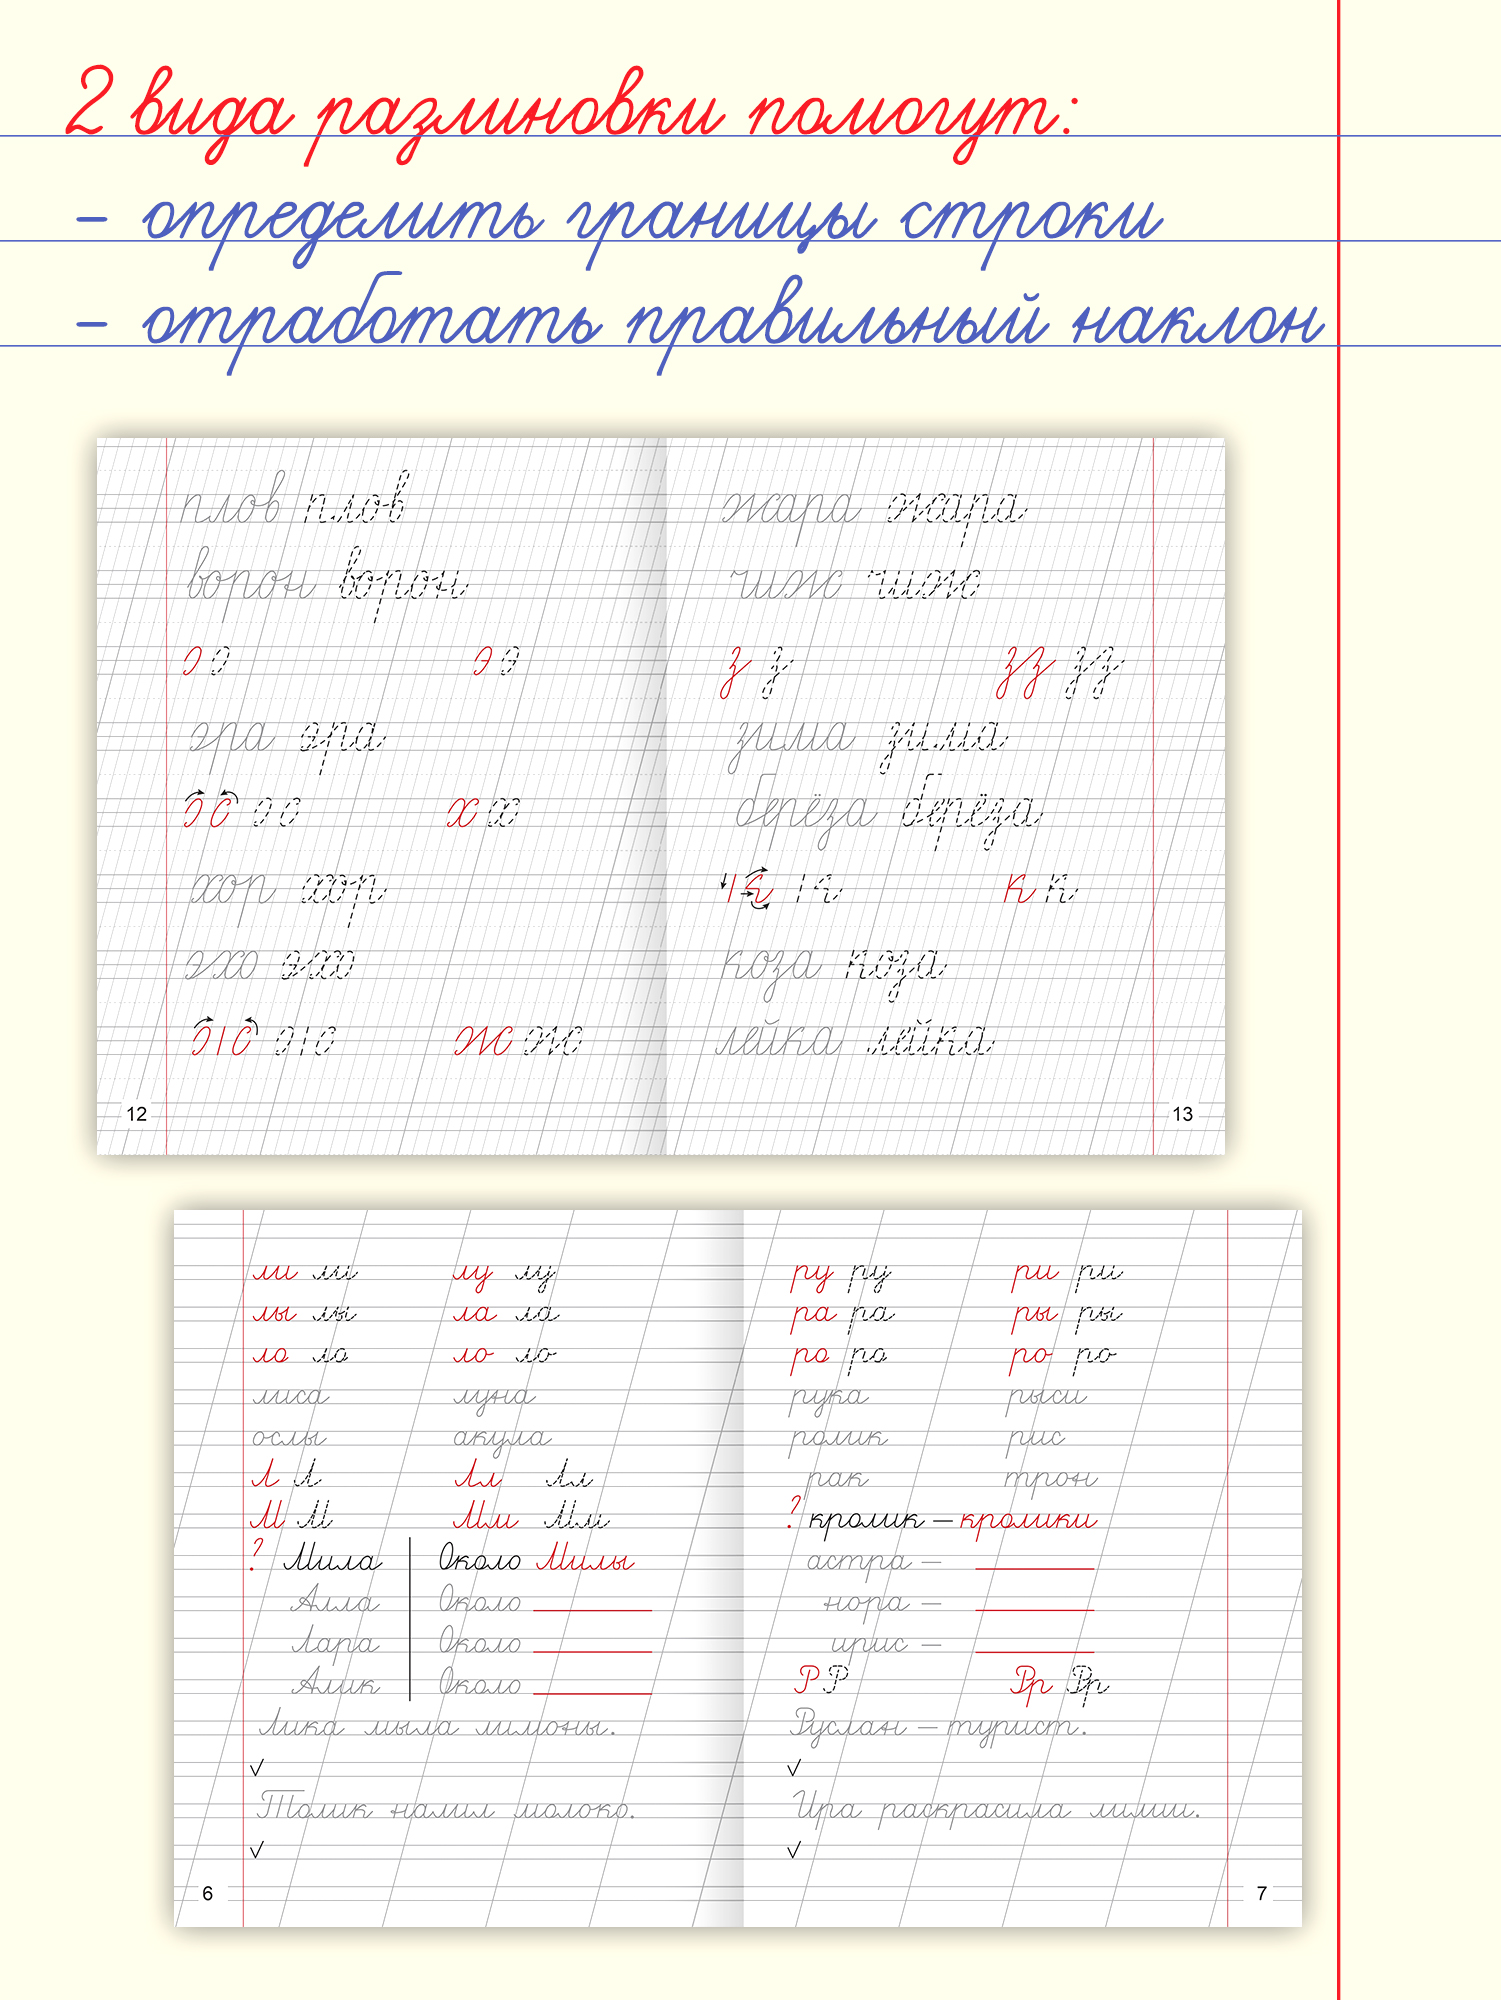 2 вида разлиновки помогут:
- определить границы строки
- отработать правильный наклон
плов плов
ворон ворон
э э
эра эра
х х
хор хор
эхо эхо
ж ж
12
жара жара
чиж чиж
з з зз зз
зима зима
берёза берёза
к к
коза коза
лейка лейка
13
ли ли лу лу
лы лы ла ла
ла ла ло ло
лиса луна
ослы акула
Л Л Лл Лл
М М Мм Мм
? Мила Около Милы
Алла Около
Лара Около
Алик Около
Лика мыла лимоны.
✓
Толик налил молоко.
✓
6
ру ру ри ри
ра ра ры ры
ро ро ро ро
рука рыси
ролик рис
рак трон
? кролик – кролики
астра –
нора –
ирис –
Р Р Рр Рр
Руслан – турист.
✓
Ира раскрасила лилии.
✓
7